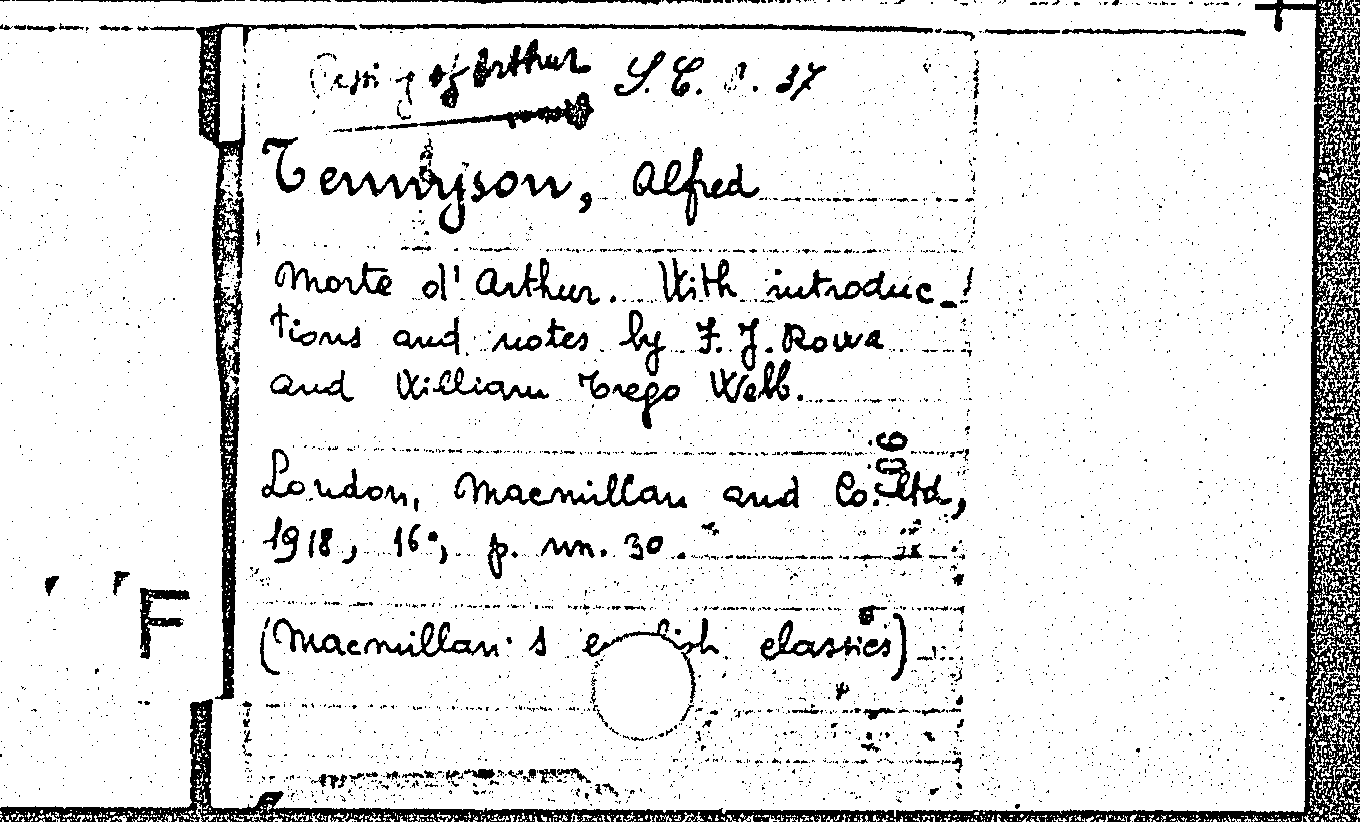 Passing of Arthur S. C. C. 37
Tennyson, Alfred
Morte d'Arthur. With introduc-
tions and notes by F. J. Rowe
and William Trego Webb.
906
London, Macmillan and Co. Ltd,
1918, 16°, p. nn. 30.
F
(Macmillan's english classics)